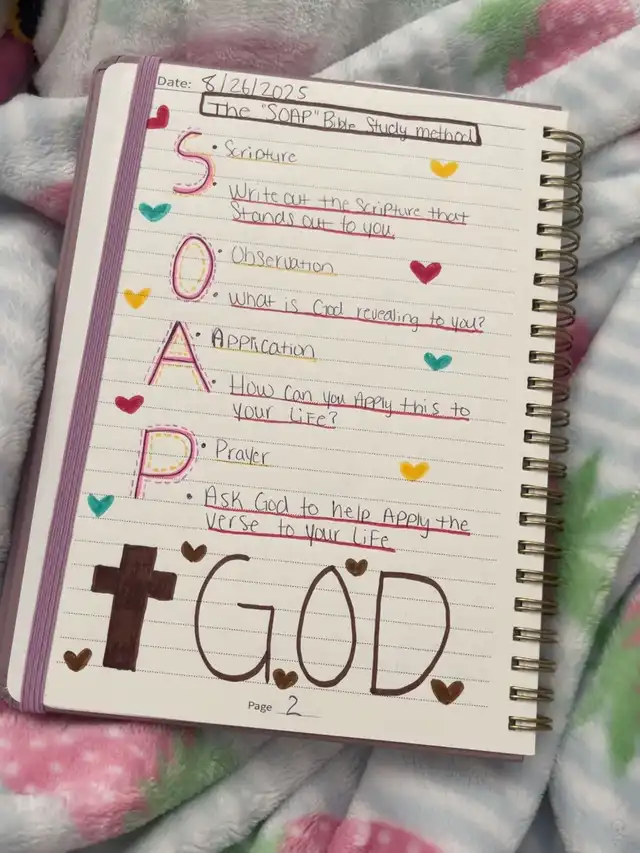 Date: 8/26/2025
The "SOAP" Bible Study method
S
• Scripture
• Write out the Scripture that
Stands out to you.
O
• Observation
• What is God revealing to you?
A
• Application
• How can you Apply this to
your Life?
P
• Prayer
• Ask God to help Apply the
verse to your Life
GOD
Page 2